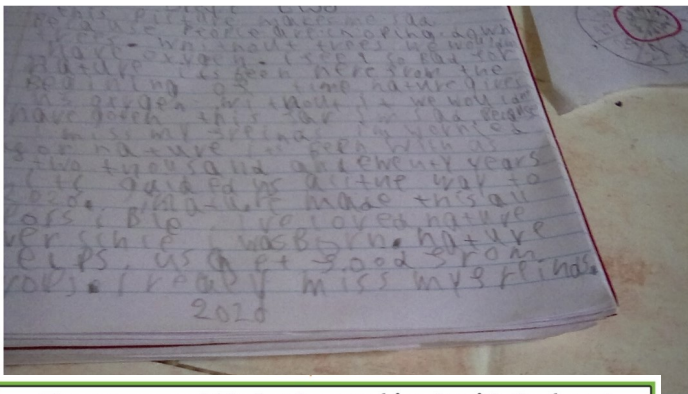 this picture makes me sad
people are choping down
without trees we would
have oxygen. i feel so bad for
nature its been here from the
begining of time nature gives
us oxygen without it we would
have goten this far im sad because
i miss my freinds im
for nature its been with us
two thousand and twenty years
its guided us all the way to
2020. nature made this all
possible i've loved nature
ever since i was Born. nature
helps us get food from
crops. i really miss my freinds.
2020